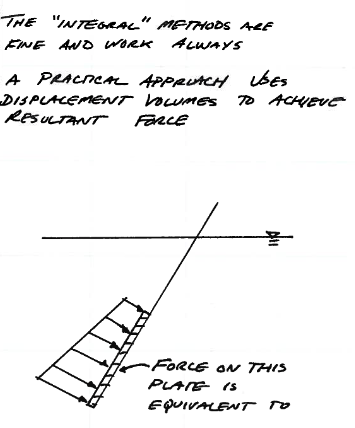 THE "INTEGRAL" METHODS ARE
FINE AND WORK ALWAYS
A PRACTICAL APPROACH USES
DISPLACEMENT VOLUMES TO ACHIEVE
RESULTANT FORCE
FORCE ON THIS
PLATE IS
EQUIVALENT TO